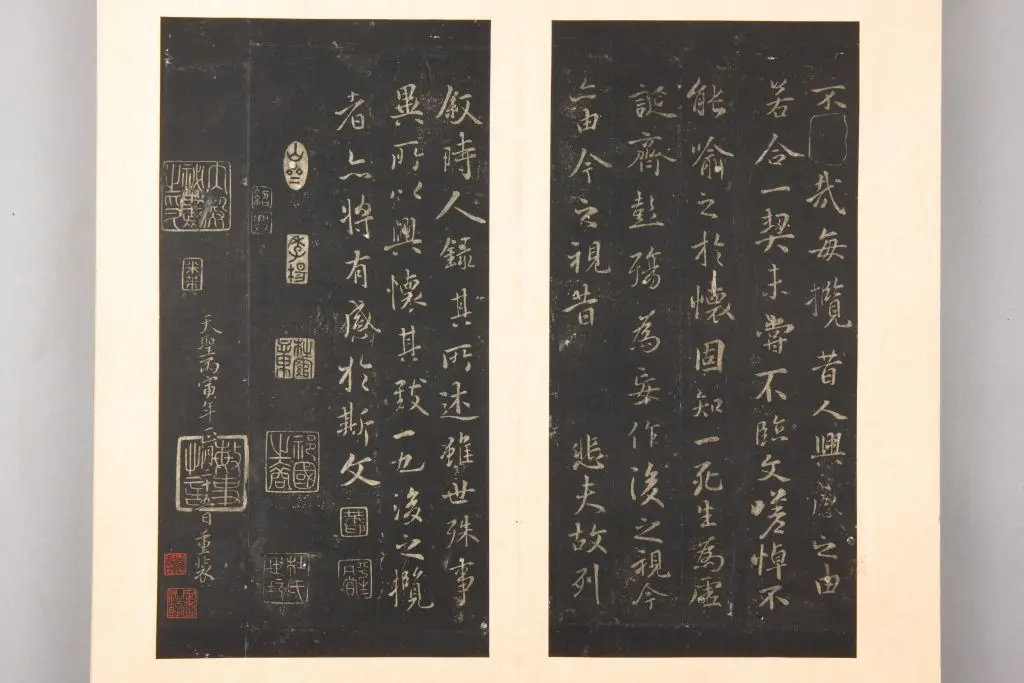 不哉每攬昔人興感之由
若合一契未嘗不臨文嗟悼不
能喻之於懷固知一死生為虛
誕齊彭殤為妄作後之視今
亦由今之視昔 悲夫故列
敘時人錄其所述雖世殊事
異所以興懷其致一也後之攬
者亦將有感於斯文
紹興
天聖丙寅年正月二十五日重裝